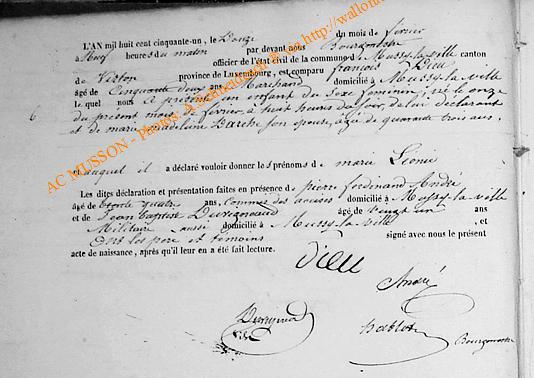 L'AN mil huit cent cinquante-un, le Douze du mois de février
à Neuf heures du matin par devant nous Bourgmestre
officier de l'état civil de la commune de Mussy-la-ville canton
de Virton province de Luxembourg, est comparu François Dieu
âgé de Cinquante deux ans Marchand domicilié à Mussy-la-ville
le quel nous a présenté un enfant du sexe féminin, né le onze
6 du présent mois de février, à huit heures du soir, de lui déclarant
et de marie madelaine son épouse, agée de quarante trois ans.
et auquel il a déclaré vouloir donner le s prénoms de marie Léonie
Les dites déclaration et présentation faites en présence de pierre ferdinand André
âgé de trente quatre ans, Commis des accises domicilié à Mussy-la-ville
et de Jean Baptiste âgé de vingt un ans
Militaire aussi domicilié à Mussy-la-ville, et
ont les père et témoins signé avec nous le présent
acte de naissance, après qu'il leur en a été fait lecture.
Dieu
André
Bourgmestre
AC MUSSON - Photos A Schneidesch